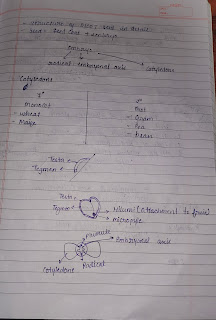 - structure of Dicot seed in
- seed = Seed coat + embryo
Embryo
radical Embryonal axis Cotyledons
Cotyledons
1°
2°
Monocot
Dicot
- wheat
- Gram
- Maize
- Pea
- bean
Testa
Tegmen
Testa
Tegmen
Hilum (attachment to fruit)
micropyle
Plumule
Embryonal axis
Cotyledons